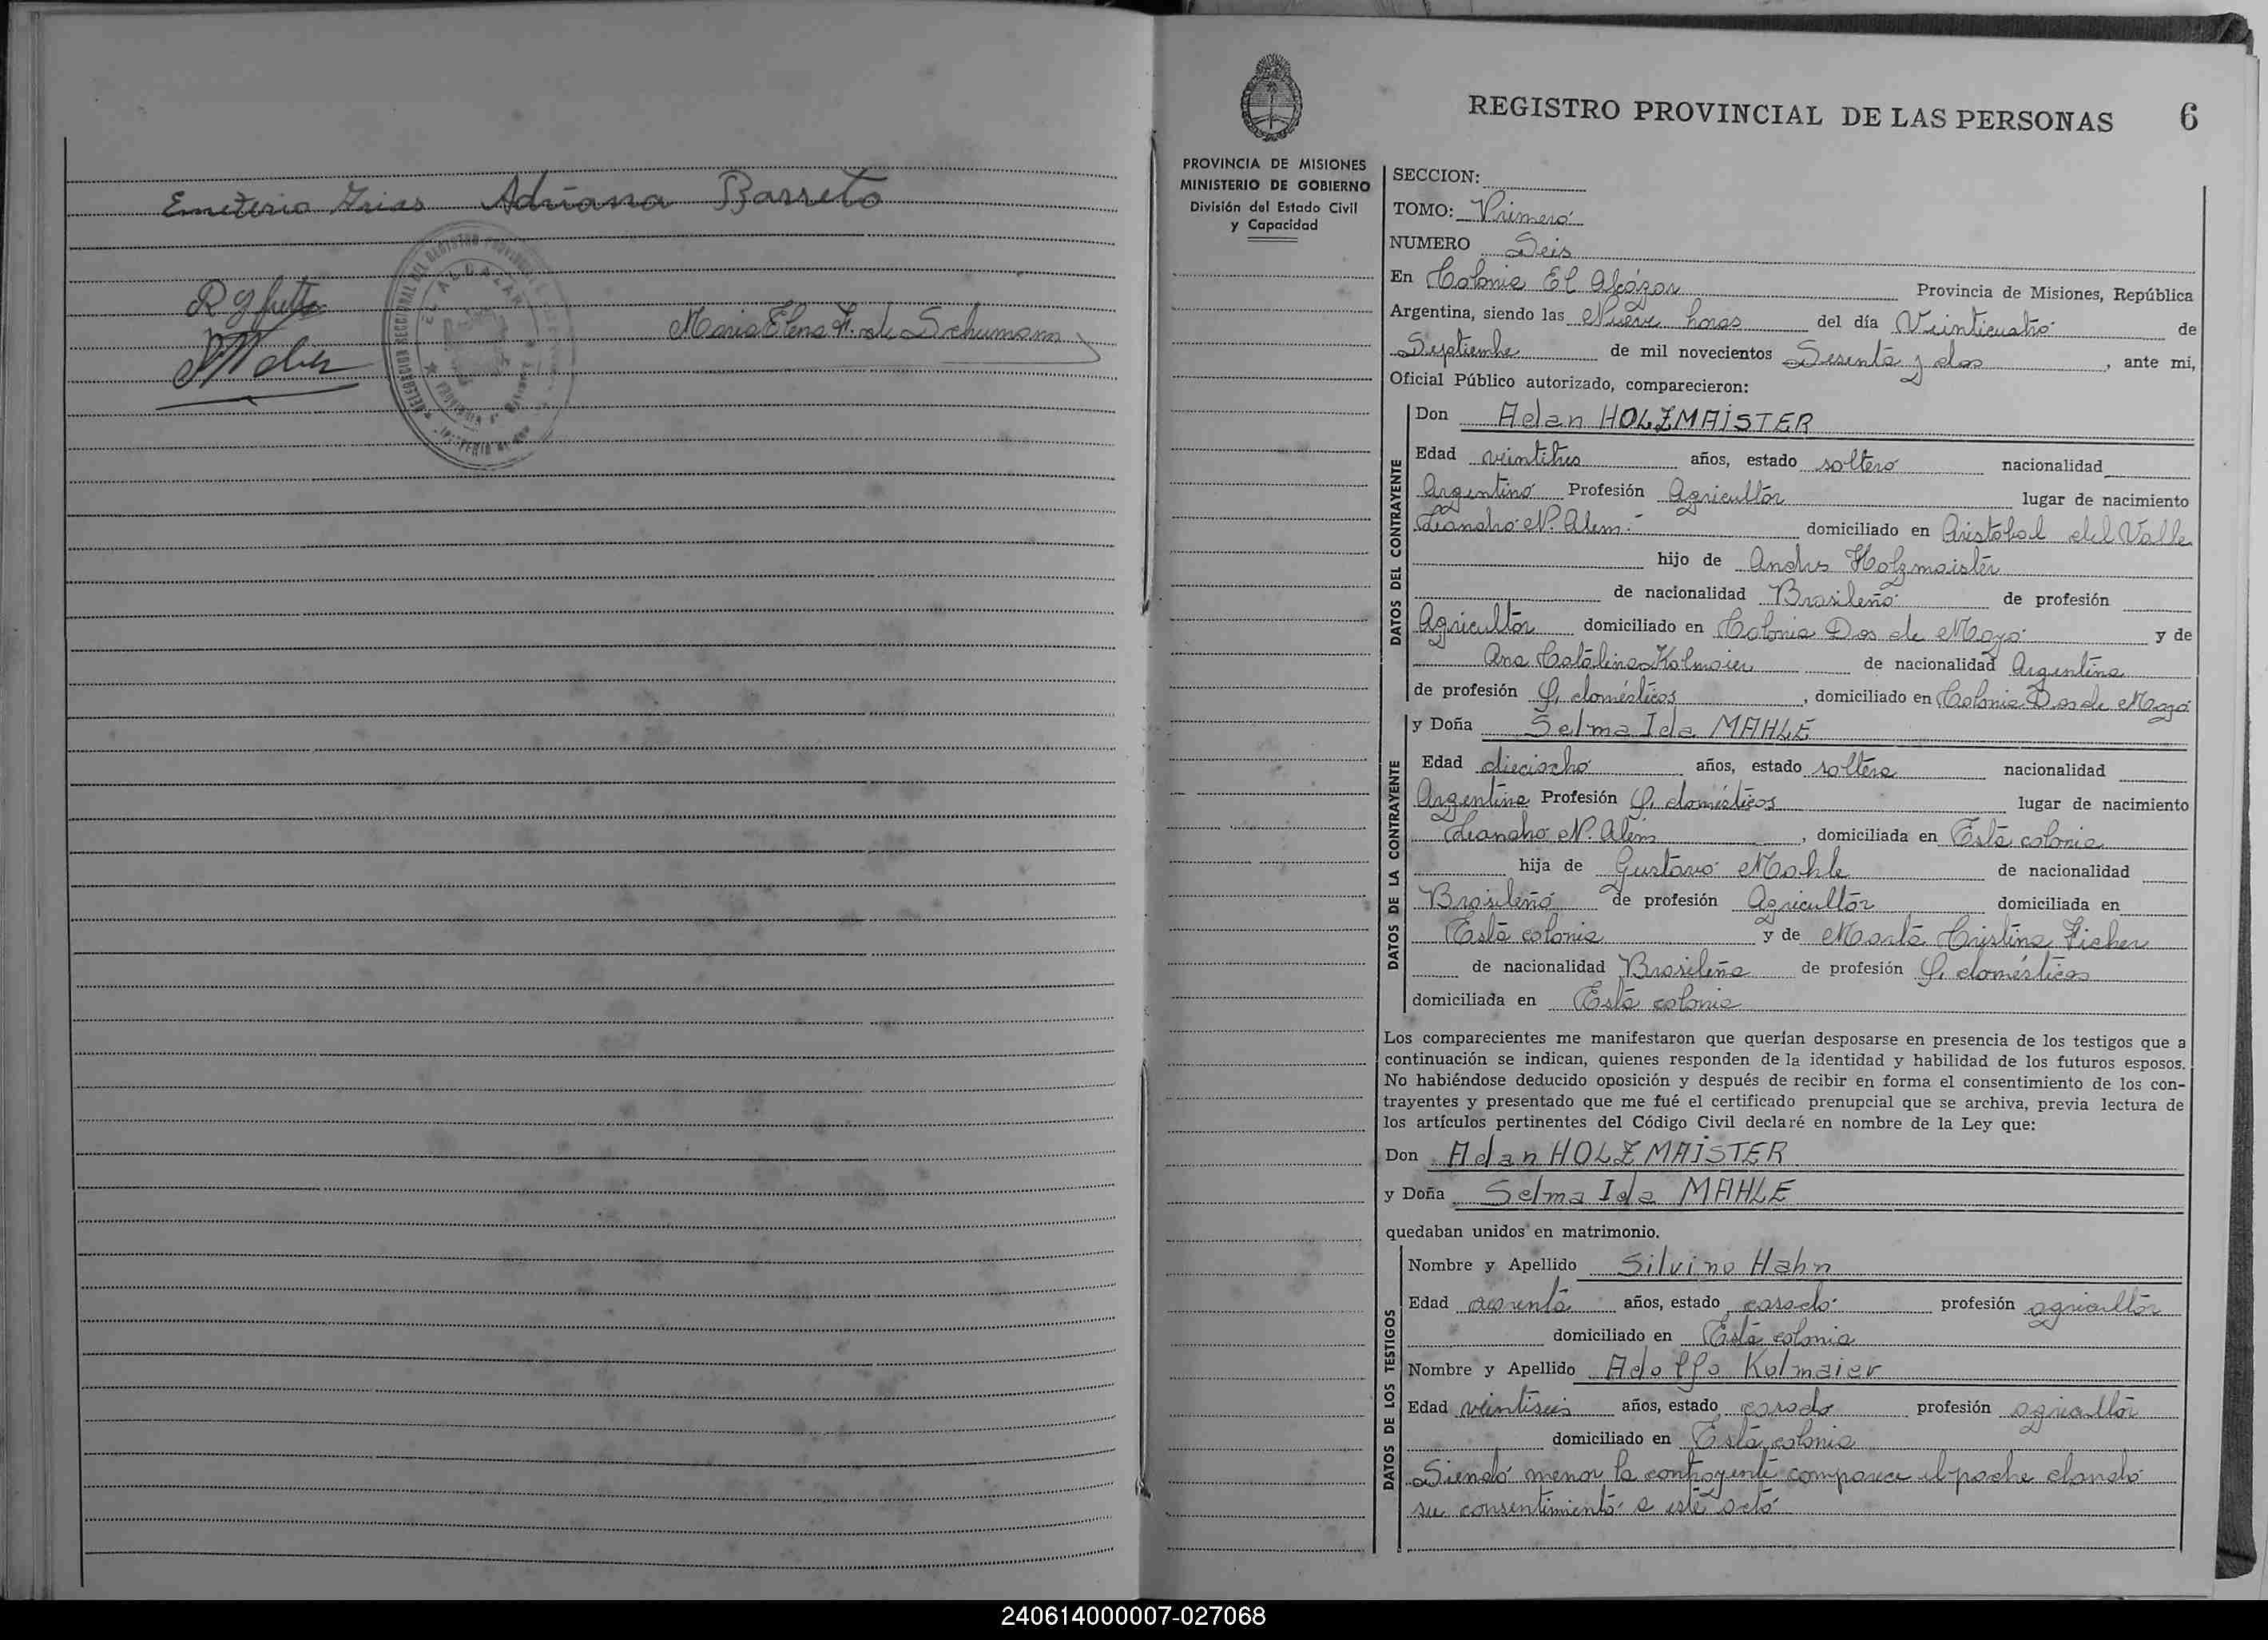 Emeterio Frias Adriana Barreto
Maria Elena F. de Schumann
EL ALCAZAR
REGISTRO PROVINCIAL DE LAS PERSONAS 6
PROVINCIA DE MISIONES
MINISTERIO DE GOBIERNO
División del Estado Civil
y Capacidad
SECCION:
TOMO: Primero
NUMERO Seis
En Colonia El Alcázar Provincia de Misiones, República
Argentina, siendo las Nueve horas del día Veinticuatro de
Septiembre de mil novecientos Sesenta y dos, ante mi,
Oficial Público autorizado, comparecieron:
DATOS DEL CONTRAYENTE
Don Adan HOLZMAISTER
Edad veintitres años, estado soltero nacionalidad
Argentino Profesión Agricultor lugar de nacimiento
Leandro N. Alem.- domiciliado en Aristobal del Valle
hijo de Andres Holzmaister
de nacionalidad Brasileño de profesión
Agricultor domiciliado en Colonia Dos de Mayo y de
Ana Catalina Kolmaier de nacionalidad Argentina
de profesión Q. domésticos, domiciliado en Colonia Dos de Mayo
DATOS DE LA CONTRAYENTE
y Doña Selma Ida MAHLE
Edad dieciocho años, estado soltera nacionalidad
Argentina Profesión Q. domésticos lugar de nacimiento
Leandro N. Alem, domiciliada en Esta colonia
hija de Gustavo Mahle de nacionalidad
Brasileño de profesión Agricultor domiciliada en
Esta colonia y de Marta Cristina Ficher
de nacionalidad Brasileña de profesión Q. domésticos
domiciliada en Esta colonia
Los comparecientes me manifestaron que querían desposarse en presencia de los testigos que a
continuación se indican, quienes responden de la identidad y habilidad de los futuros esposos.
No habiéndose deducido oposición y después de recibir en forma el consentimiento de los con-
trayentes y presentado que me fué el certificado prenupcial que se archiva, previa lectura de
los artículos pertinentes del Código Civil declaré en nombre de la Ley que:
Don Adan HOLZMAISTER
y Doña Selma Ida MAHLE
quedaban unidos en matrimonio.
DATOS DE LOS TESTIGOS
Nombre y Apellido Silvino Hahn
Edad años, estado casado profesión agricultor
domiciliado en Esta colonia
Nombre y Apellido Adolfo Kolmaier
Edad veintiseis años, estado casado profesión agricultor
domiciliado en Esta colonia
Siendo menor la contrayente comparece el padre dando
su consentimiento a este acto
240614000007-027068